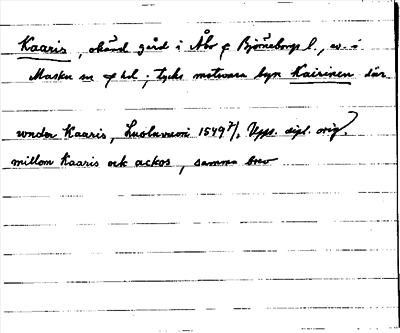 Kaaris, okänd gård i Åbo o Björneborgs l., ev. i
Masku sn o hd; tycks motsvara byn Kairinen där.
wnder Kaaris, 1549 7/, Upps. dipl. orig.
millom Kaaris ock ackos, samma brev